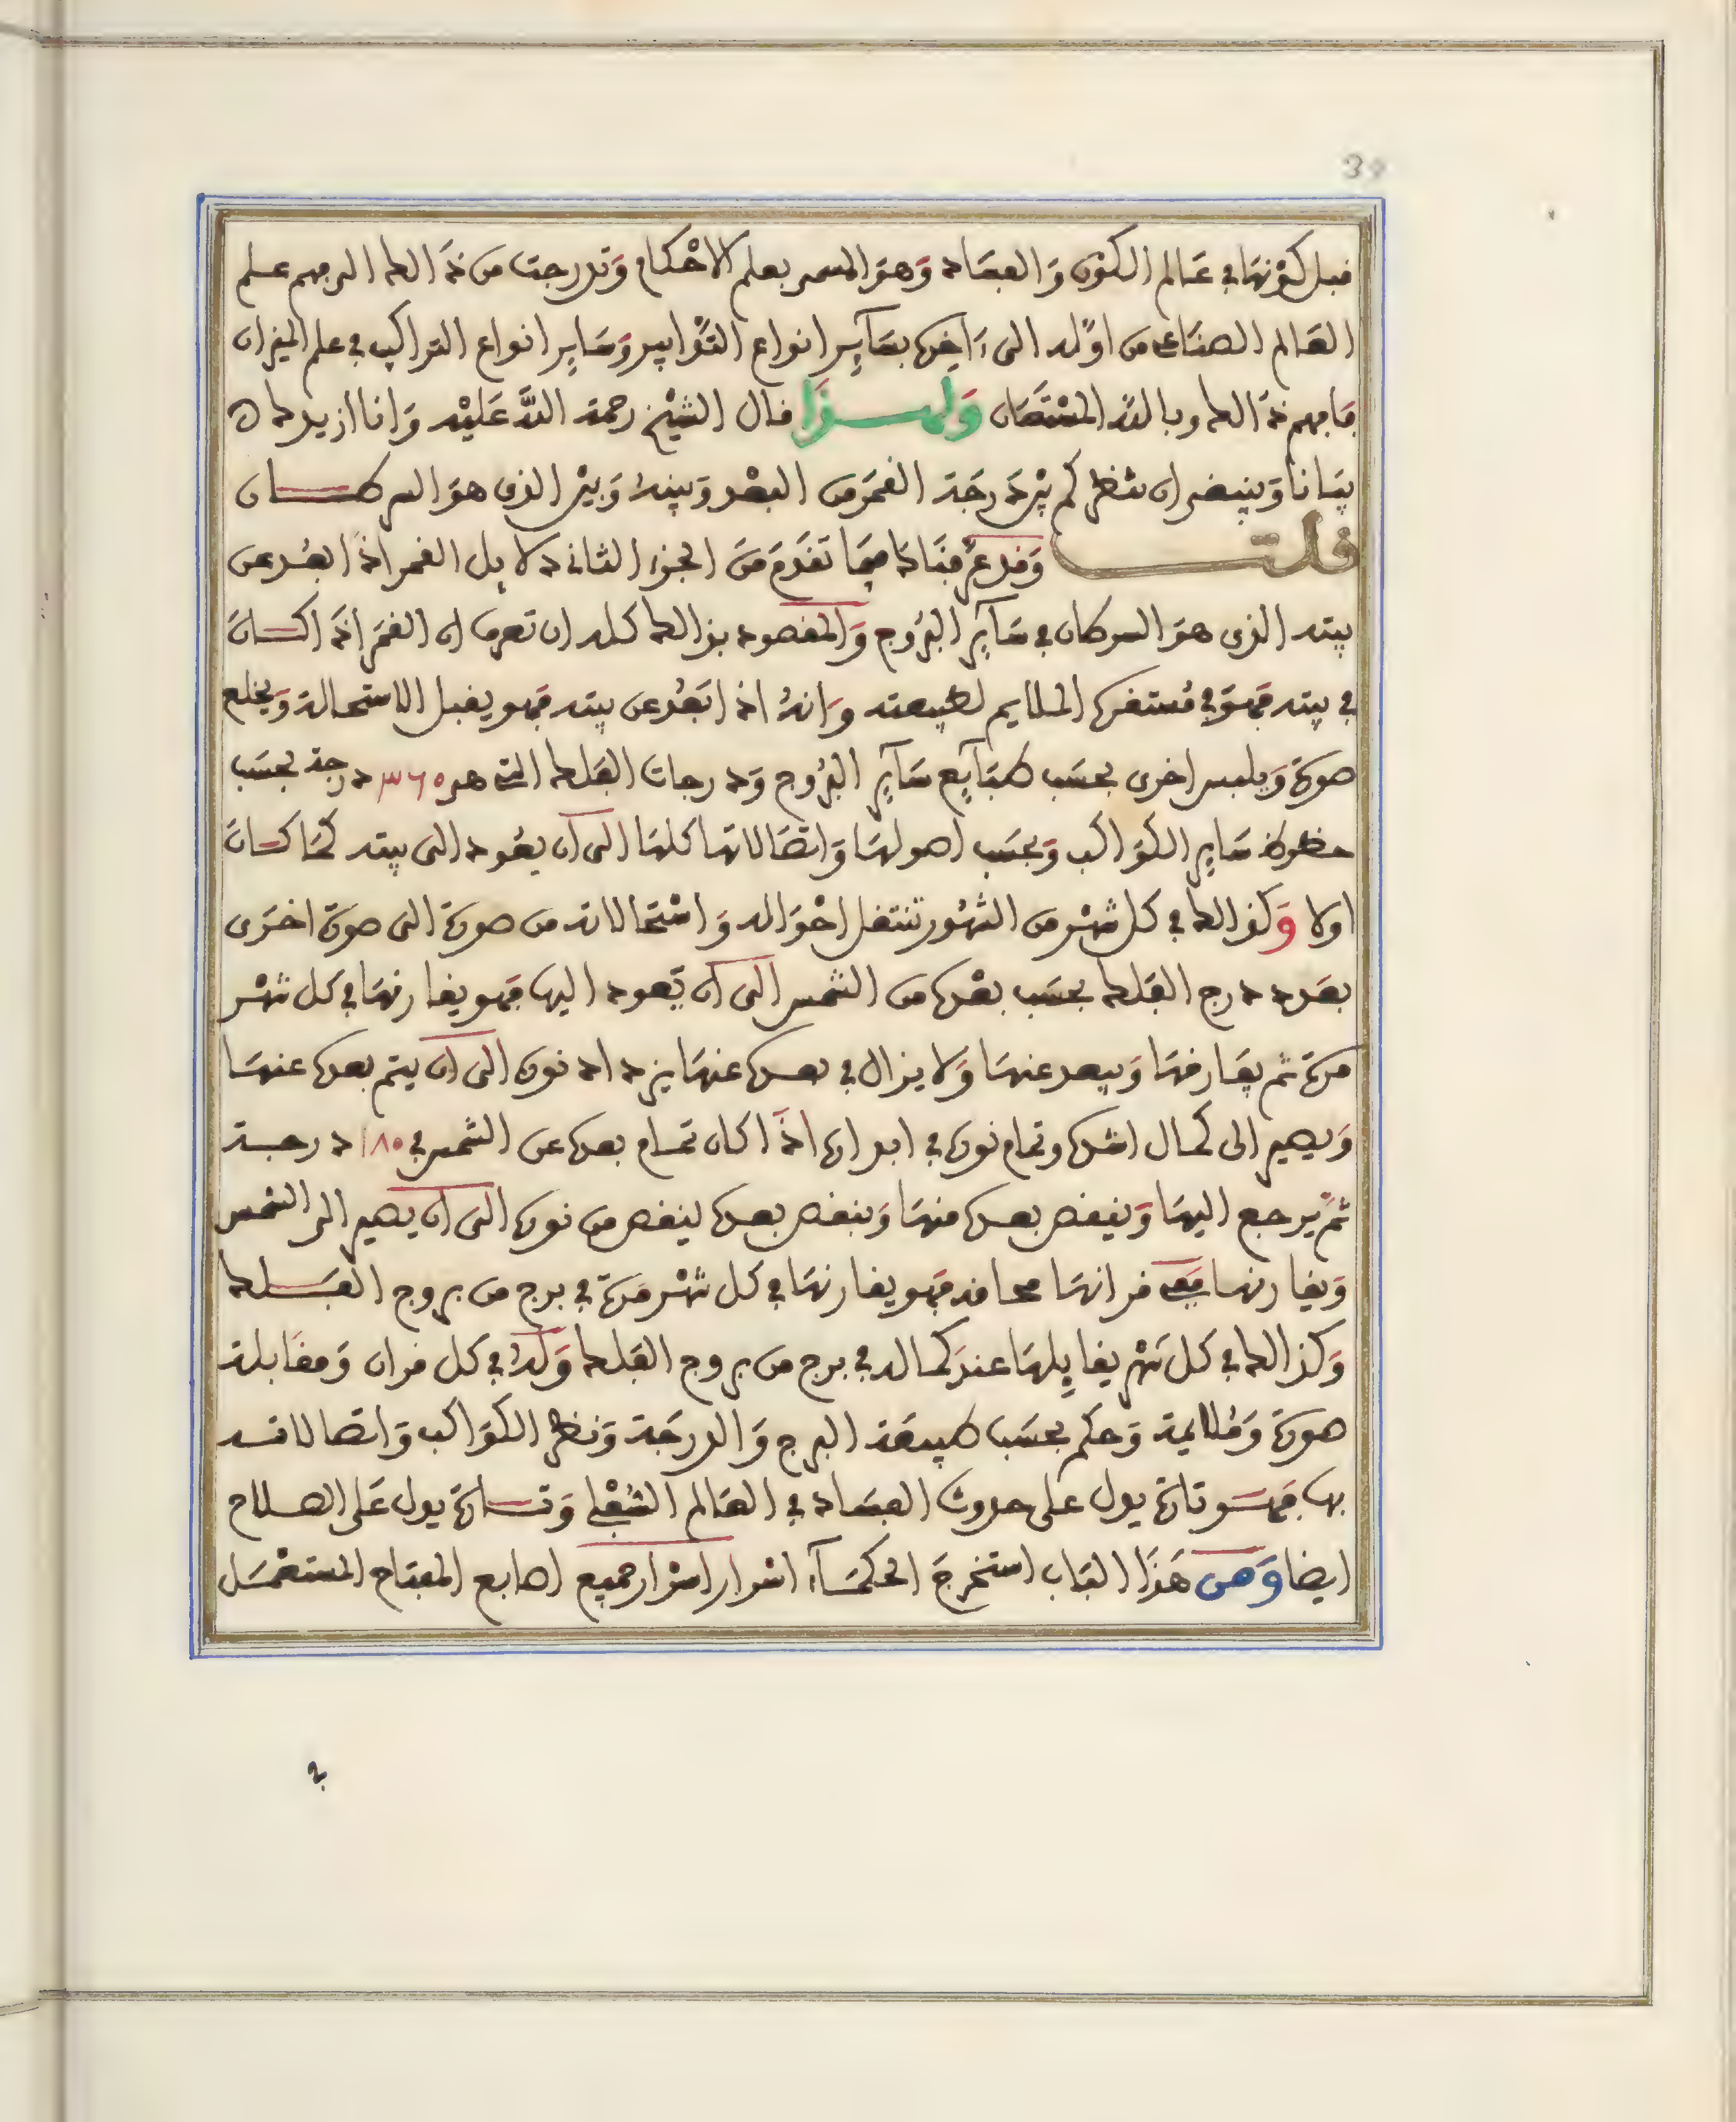 30
قبل كونها في عالم الكون والفساد وهو المسمى بعلم الاحكام وتدرجت من ذالك الى فهم علم
العالم الصناعي من اوله الى ءاخره بسآير انواع التوابير وساير انواع التراكيب في علم الميزان
فافهم ذالك وبالله المستعان ولهذا قال الشيخ رحمة الله عليه وانا ازيدك
بيانا وينبغي ان تنظر كم بين درجة القمر من البعد وبينه وبين الذي هو السرطان
قلت وقد عرفناك فيما تقدم من الجزء الثاني دلايل القمر اذا ابعد عن
بيته الذي هو السرطان في سآير البروج والمقصود بذالك كله ان تعرف ان القمر اذا كان
في بيته فهو في مستقره الملايم لطبيعته وانه اذا بعد عن بيته فهو يقبل الاستحالة ويخلع
صورة ويلبس اخرى بحسب طبآيع سآير البروج ودرجات الفلك التي هي ٣٦٠ درجة بحسب
حظوظ ساير الكواكب وبحسب اصولها واتصالاتها كلها الى ان يعود الى بيته كما كان
اولا وكذالك في كل شهر من الشهور تنتقل احواله واستحالاته من صورة الى صورة اخرى
بعدد درج الفلك بحسب بعده من الشمس الى ان يعود اليها فهو يقارنها في كل شهر
مرة ثم يفارقها ويبعد عنها ولا يزال في بعده عنها يزداد نوره الى ان يتم بعده عنها
ويصير الى كمال اشده وتمام نوره في ابداره اذا كان تمام بعده عن الشمس في ١٨٠ درجة
ثم يرجع اليها وينقص بعده منها وبنقص بعده لينقص من نوره الى ان يصير الى الشمس
ويقارنها ففي قرانها محاقه فهو يقارنها في كل شهر مرة في برج من بروج الفلك
وكذالك في كل شهر يقابلها عند كماله في برج من بروج الفلك وله في كل قران ومقابلة
صورة وملايمة وحكم بحسب طبيعة البرج والدرجة ونظر الكواكب واتصالاته
بها فهو تارة يدل على حدوث الفساد في العالم السفلي وتارة يدل على الصلاح
ايضا ومن هذا الباب استخرج الحكمآء اسرار اسرار جميع اصابع المفتاح المستعمل